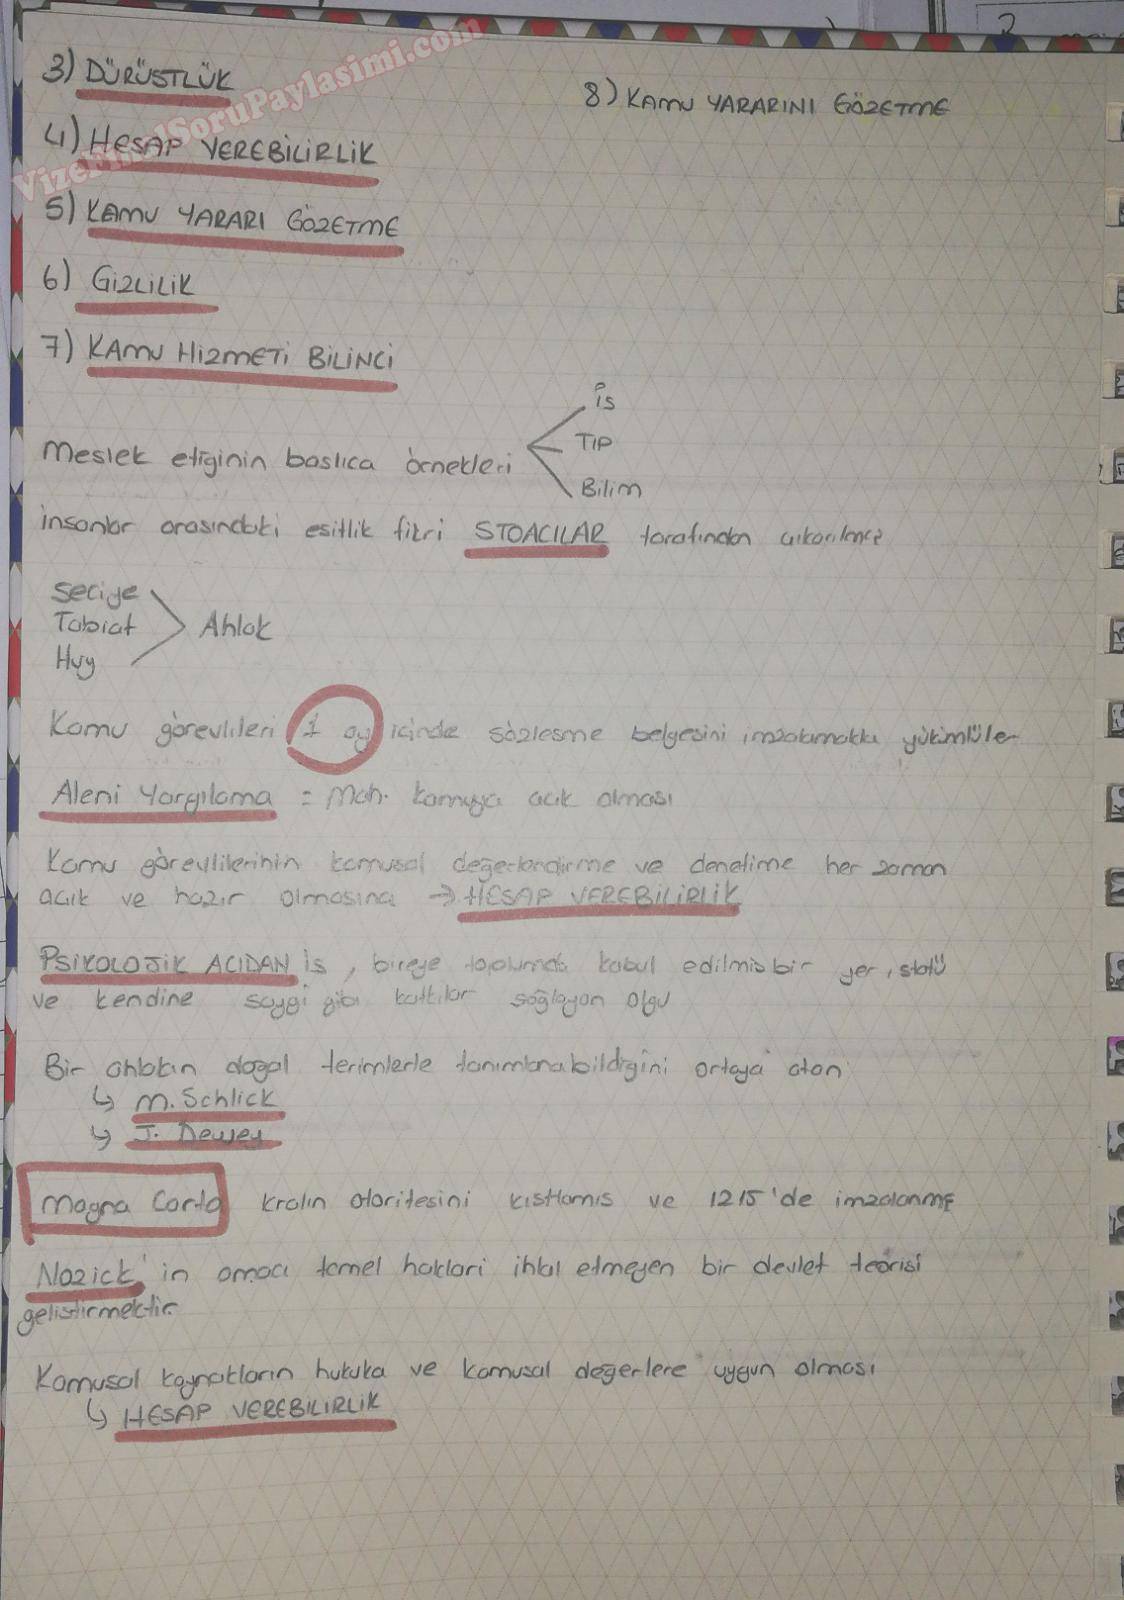 VizeFinalSoruPaylasimi.com
3) DÜRÜSTLÜK
8) KAMU YARARINI GÖZETME
4) HESAP VEREBİLİRLİK
5) KAMU YARARI GÖZETME
6) GİZLİLİK
7) KAMU HİZMETİ BİLİNCİ
Meslek etiğinin baslıca örnekleri
İs
TIP
Bilim
insanlar arasındaki esitlik fikri STOACILAR tarafından cıkarılmıs
Seciye
Tabiat
Huy
Ahlak
Kamu görevlileri 1 ay icinde sözlesme belgesini imzalamakla yükümlüler
Aleni Yargılama = Mah. kamuya acık olması
Kamu görevlilerinin kamusal değerlendirme ve denetime her zaman
acık ve hazır olmasına → HESAP VEREBİLİRLİK
PSİKOLOJİK ACIDAN İs, bireye toplumda kabul edilmis bir yer, statü
ve kendine saygı gibi katkılar sağlayan olgu
Bir ahlakın doğal terimlerle tanımlanabildiğini ortaya atan
↳ M. Schlick
↳ J. Dewey
Magna Carta kralın otoritesini kıstlamıs ve 1215'de imzalanmıs
Nozick'in amacı temel hakları ihlal etmeyen bir devlet teorisi
gelistirmektir
Kamusal kaynakların hukuka ve kamusal değerlere uygun olması
↳ HESAP VEREBİLİRLİK